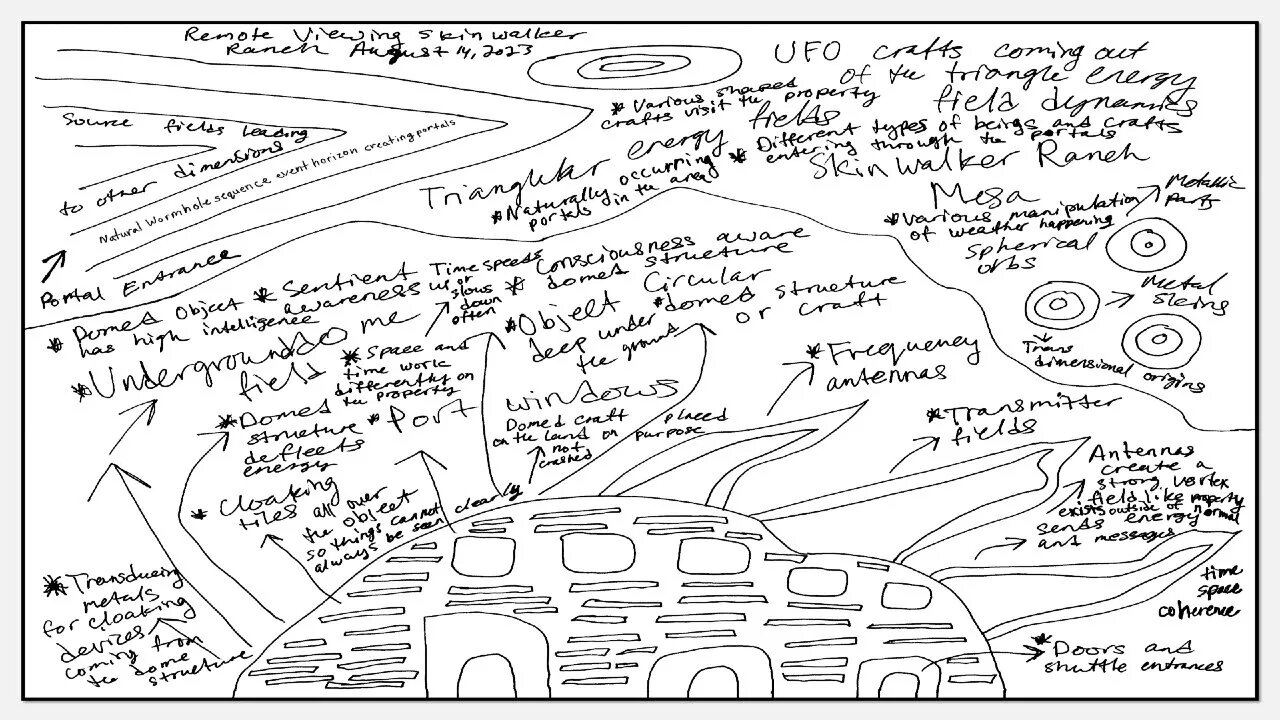 Remote Viewing Skinwalker
Ranch August 14, 2023
UFO crafts coming out
of the triangle energy
field dynamics
* Various shaped
crafts visit the property
Source fields leading
to other dimensions
Natural Wormhole sequence event horizon creating portals
Portal Entrance
Triangular energy fields
* Naturally occurring
portals in the area
* Different types of beings and crafts
entering through the portals
Skinwalker Ranch
Mesa
* Various manipulation
of weather happening
Metallic
Parts
Spherical
orbs
Metal
Skins
Trans
dimensional origins
* Domed Object
has high intelligence
* Sentient
awareness
Time speeds
up or
slows
down
often
* Consciousness aware
domed structure
* Underground dome
field
* Space and
time work
differently on
the property
* Object Circular
deep under
the ground
* domed structure
or craft
* Domed
structure
deflects
energy
* Port
windows
Domed craft
on the land on placed
purpose
not
crashed
* Frequency
antennas
* Transmitter
fields
Antennas
create a
strong vortex
field like property
exists outside of normal
sends energy
and messages
time
space
coherence
* Cloaking
tiles all over
the object
so things cannot
always be seen clearly
* Transducing
metals
for cloaking
devices
coming from
the dome
structure
* Doors and
shuttle entrances